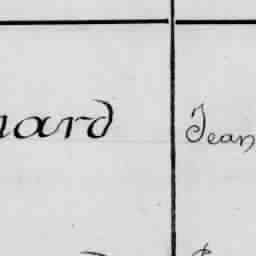 nard Jean